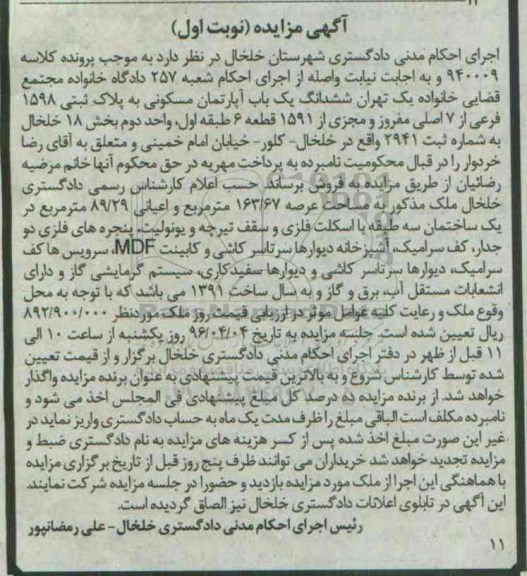 آگهی مزایده (نوبت اول)
اجرای احکام مدنی دادگستری شهرستان خلخال در نظر دارد به موجب پرونده کلاسه
۹۴۰۰۰۹ و به اجابت نیابت واصله از اجرای احکام شعبه ۲۵۷ دادگاه خانواده مجتمع
قضایی خانواده یک تهران ششدانگ یک باب آپارتمان مسکونی به پلاک ثبتی ۱۵۹۸
فرعی از ۷ اصلی مفروز و مجزی از ۱۵۹۱ قطعه ۶ طبقه اول، واحد دوم بخش ۱۸ خلخال
به شماره ثبت ۲۹۴۱ واقع در خلخال- کلور- خیابان امام خمینی و متعلق به آقای رضا
خردوار را در قبال محکومیت نامبرده به پرداخت مهریه در حق محکوم آنها خانم مرضیه
رضائیان از طریق مزایده به فروش برساند. حسب اعلام کارشناس رسمی دادگستری
خلخال ملک مذکور به مساحت عرصه ۱۶۳/۶۷ مترمربع و اعیانی ۸۹/۲۹ مترمربع در
یک ساختمان سه طبقه با اسکلت فلزی و سقف تیرچه و یونولیت، پنجره های فلزی دو
جدار، کف سرامیک، آشپزخانه دیوارها سرتاسر کاشی و کابینت MDF، سرویس ها کف
سرامیک، دیوارها سرتاسر کاشی و دیوارها سفیدکاری، سیستم گرمایشی گاز و دارای
انشعابات مستقل آب، برق و گاز و به سال ساخت ۱۳۹۱ می باشد که با توجه به محل
وقوع ملک و رعایت کلیه عوامل موثر در ارزیابی قیمت روز ملک مورد نظر ۸۹۲/۹۰۰/۰۰۰
ریال تعیین شده است. جلسه مزایده به تاریخ ۹۶/۰۴/۰۴ روز یکشنبه از ساعت ۱۰ الی
۱۱ قبل از ظهر در دفتر اجرای احکام مدنی دادگستری خلخال برگزار و از قیمت تعیین
شده توسط کارشناس شروع و به بالاترین قیمت پیشنهادی به عنوان برنده مزایده واگذار
خواهد شد. از برنده مزایده ده درصد کل مبلغ پیشنهادی فی المجلس اخذ می شود و
نامبرده مکلف است الباقی مبلغ را ظرف مدت یک ماه به حساب دادگستری واریز نماید در
غیر این صورت مبلغ اخذ شده پس از کسر هزینه های مزایده به نام دادگستری ضبط و
مزایده تجدید خواهد شد خریداران می توانند ظرف پنج روز قبل از تاریخ برگزاری مزایده
با هماهنگی این اجرا از ملک مورد مزایده بازدید و حضورا در جلسه مزایده شرکت نمایند.
این آگهی در تابلوی اعلانات دادگستری خلخال نیز الصاق گردیده است.
رئیس اجرای احکام مدنی دادگستری خلخال- علی رمضانپور
۱۱